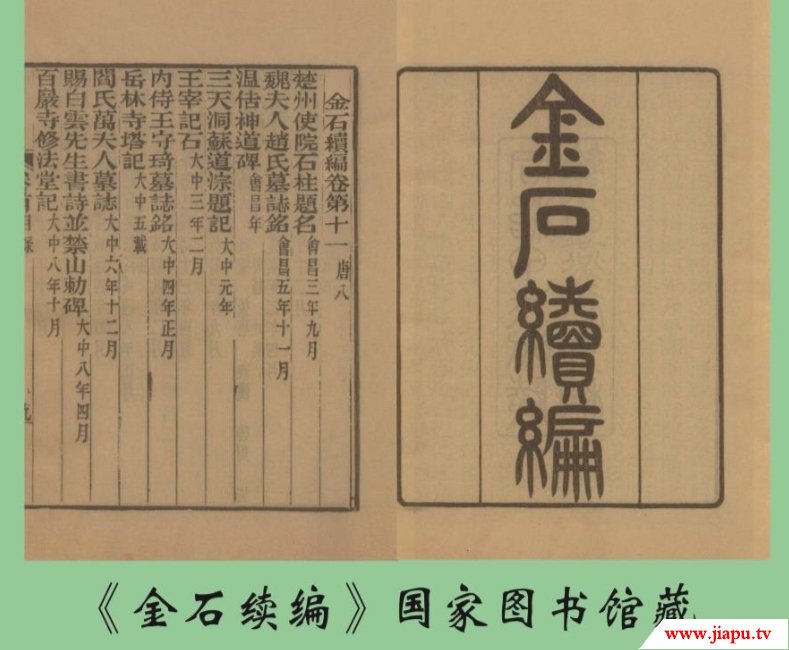 金石續編
金石續編卷第十一 唐八
楚州使院石柱題名 會昌三年九月
魏夫人趙氏墓誌銘 會昌五年十一月
温佶神道碑 會昌年
三天洞蘇道淙題記 大中元年
王宰記石 大中三年二月
内侍王守琦墓誌銘 大中四年正月
岳林寺塔記 大中五載
閻氏萬夫人墓誌 大中六年十二月
賜白雲先生書詩並禁山勅碑 大中八年四月
百巖寺修法堂記 大中八年十月
《金石续编》国家图书馆藏
www.jiapu.tv